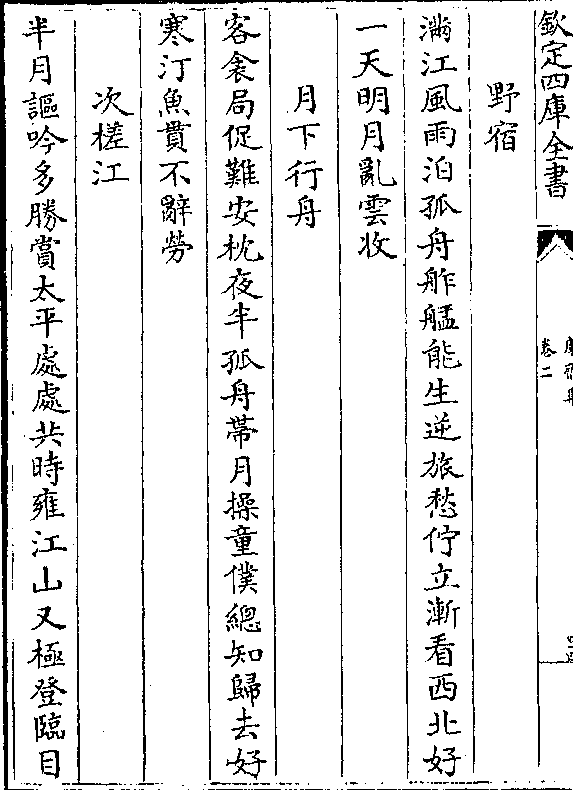 欽定四庫全書
卷二
野宿
滿江風雨泊孤舟舴艋能生逆旅愁佇立漸看西北好
一天明月亂雲收
月下行舟
客衾局促難安枕夜半孤舟帶月操童僕總知歸去好
寒汀魚貫不辭勞
次槎江
半月謳吟多勝賞太平處處共時雍江山又極登臨目